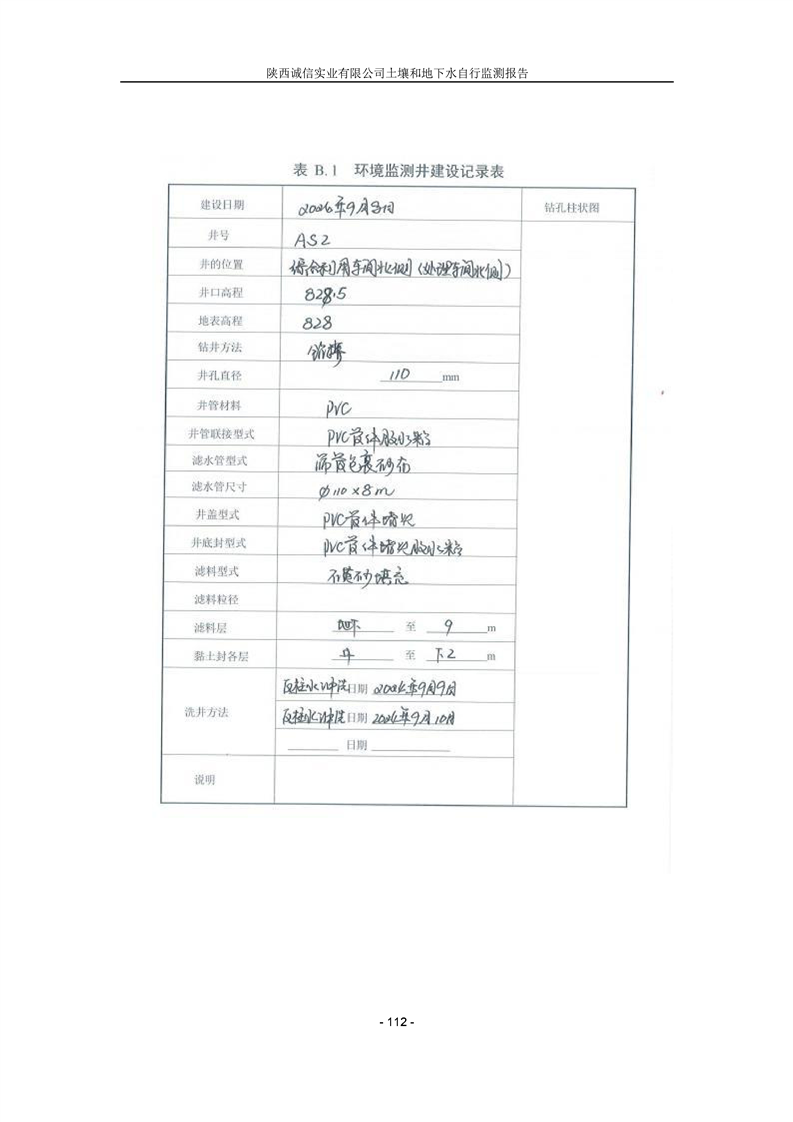 陕西诚信实业有限公司土壤和地下水自行监测报告
表 B.1 环境监测井建设记录表
建设日期 钻孔柱状图
井号 AS2
井的位置 综合利用车间北侧（处理车间北侧）
井口高程 828.5
地表高程 828
钻井方法
井孔直径 110 mm
井管材料 PVC
井管联接型式 PVC管体胶水粘
滤水管型式 筛管包裹砂布
滤水管尺寸 φ110×8m
井盖型式 PVC管体堵头
井底封型式 PVC管体堵头胶水粘
滤料型式 石英砂填充
滤料粒径
滤料层 地下 至 9 m
黏土封各层 至 下2 m
反程水冲洗 日期 9月9日
洗井方法
水冲洗 日期 9月10日
日期
说明
- 112 -